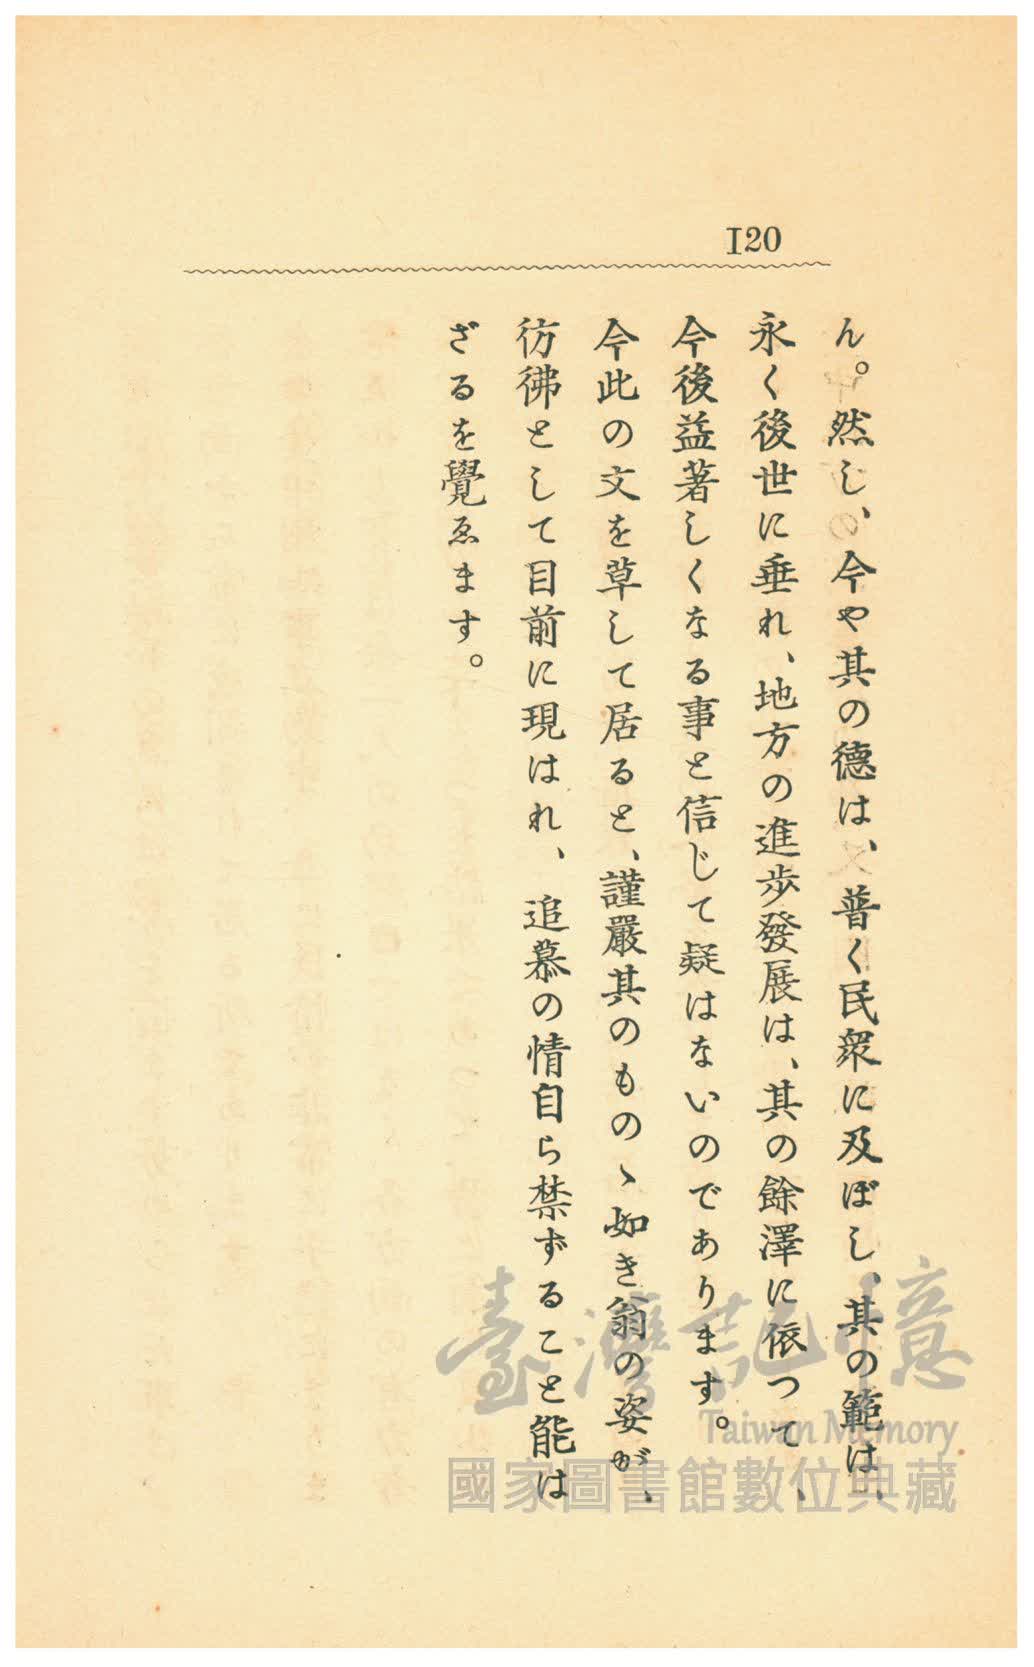 120
ん。然し、今や其の德は、普く民衆に及ぼし、其の範は、
永く後世に垂れ、地方の進歩發展は、其の餘澤に依つて、
今後益著しくなる事と信じて疑はないのであります。
今此の文を草して居ると、謹嚴其のものゝ如き翁の姿が、
彷彿として目前に現はれ、追慕の情自ら禁ずること能は
ざるを覺ゑます。
臺灣記憶
Taiwan Memory
國家圖書館數位典藏